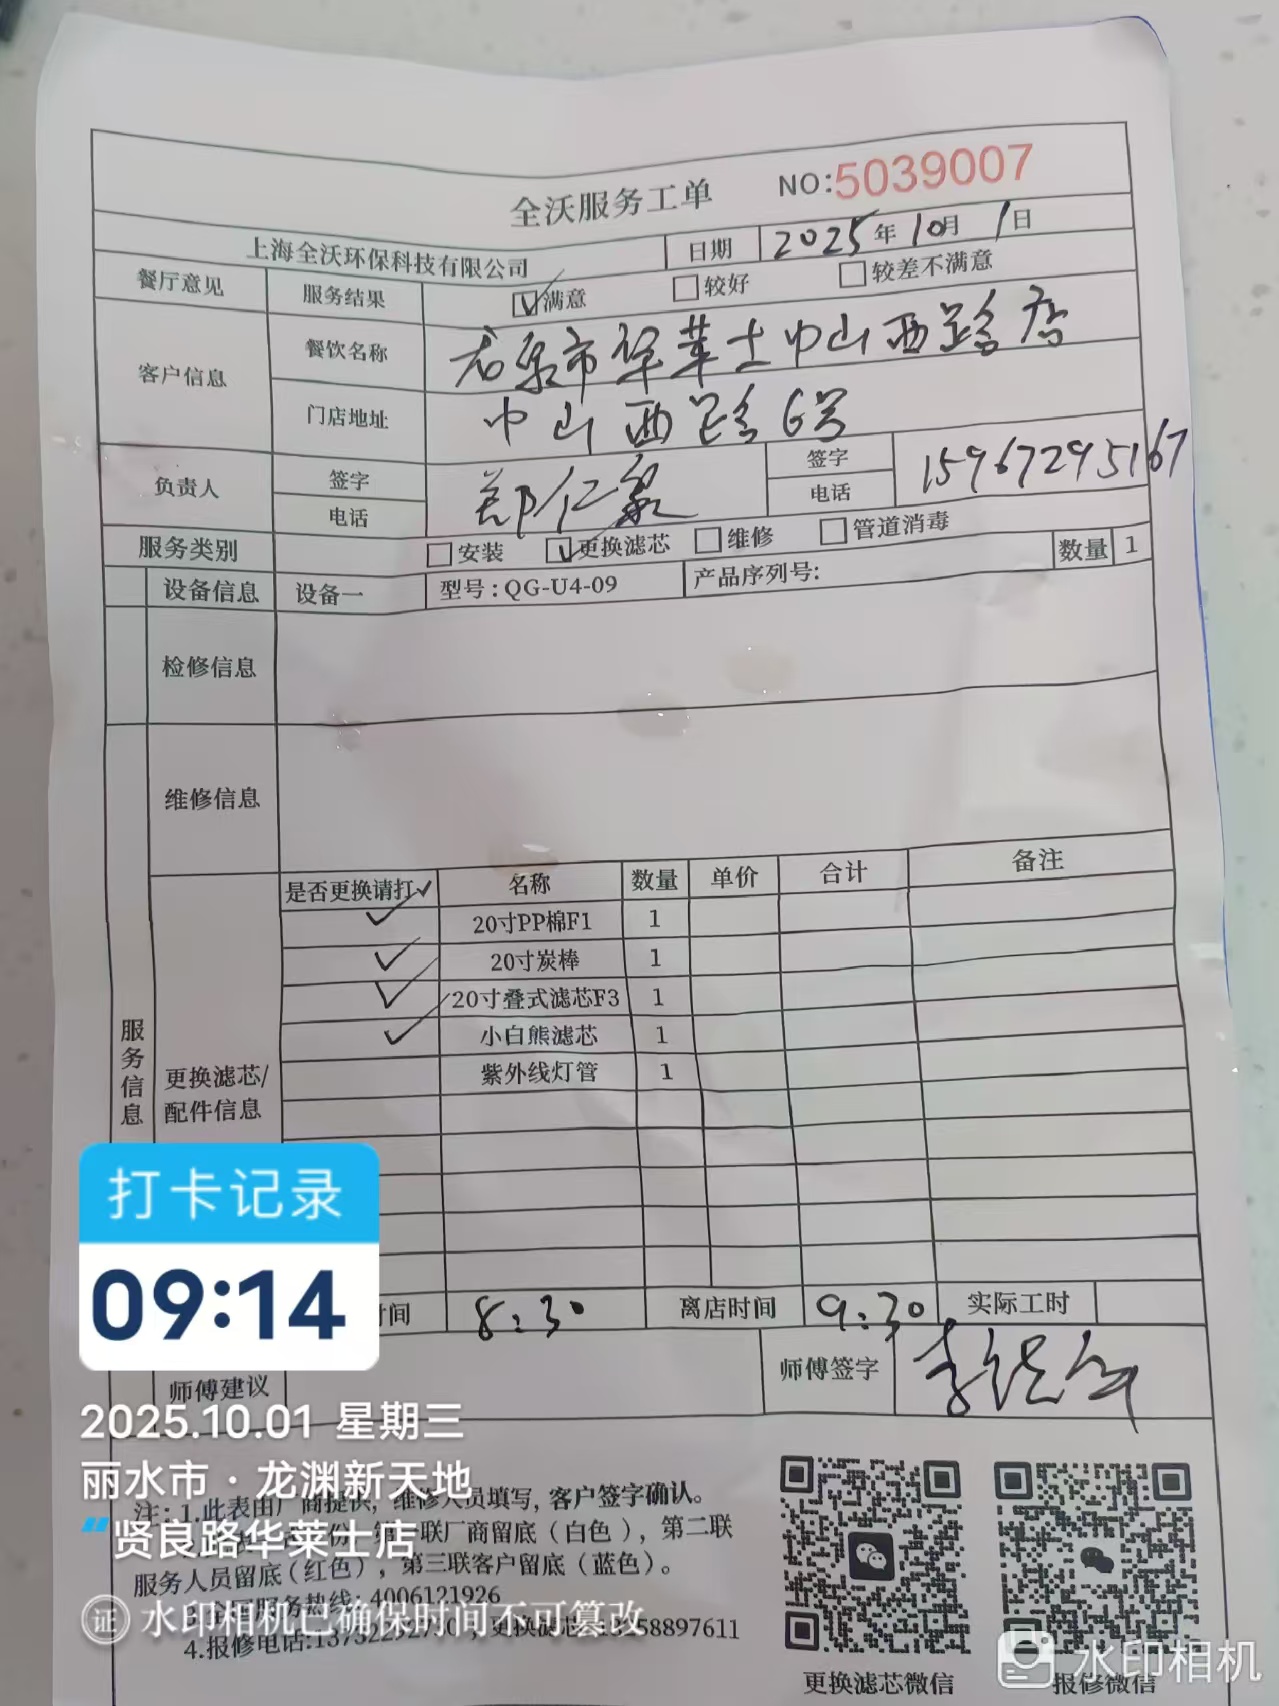 全沃服务工单 NO:5039007
上海全沃环保科技有限公司 日期 2025年10月1日
餐厅意见 服务结果 满意 较好 较差不满意
客户信息 餐饮名称 龙泉市华莱士中山西路店
门店地址 中山西路6号
负责人 签字 郑仁泉 签字 15967295167
电话 电话
服务类别 安装 更换滤芯 维修 管道消毒
设备信息 设备一 型号:QG-U4-09 产品序列号: 数量 1
检修信息
维修信息
是否更换请打✓ 名称 数量 单价 合计 备注
✓ 20寸PP棉F1 1
✓ 20寸炭棒 1
✓ 20寸叠式滤芯F3 1
✓ 小白熊滤芯 1
紫外线灯管 1
服务信息
更换滤芯/
配件信息
打卡记录
09:14
时间 8:30 离店时间 9:30 实际工时
师傅建议 师傅签字
2025.10.01 星期三
丽水市·龙渊新天地
贤良路华莱士店
注:1.此表由厂商提供,维修人员填写,客户签字确认。
联厂商留底(白色),第二联
服务人员留底(红色),第三联客户留底(蓝色)。
服务热线:4006121926
4.报修电话:
水印相机已确保时间不可篡改
证
更换滤芯微信 报修微信
水印相机